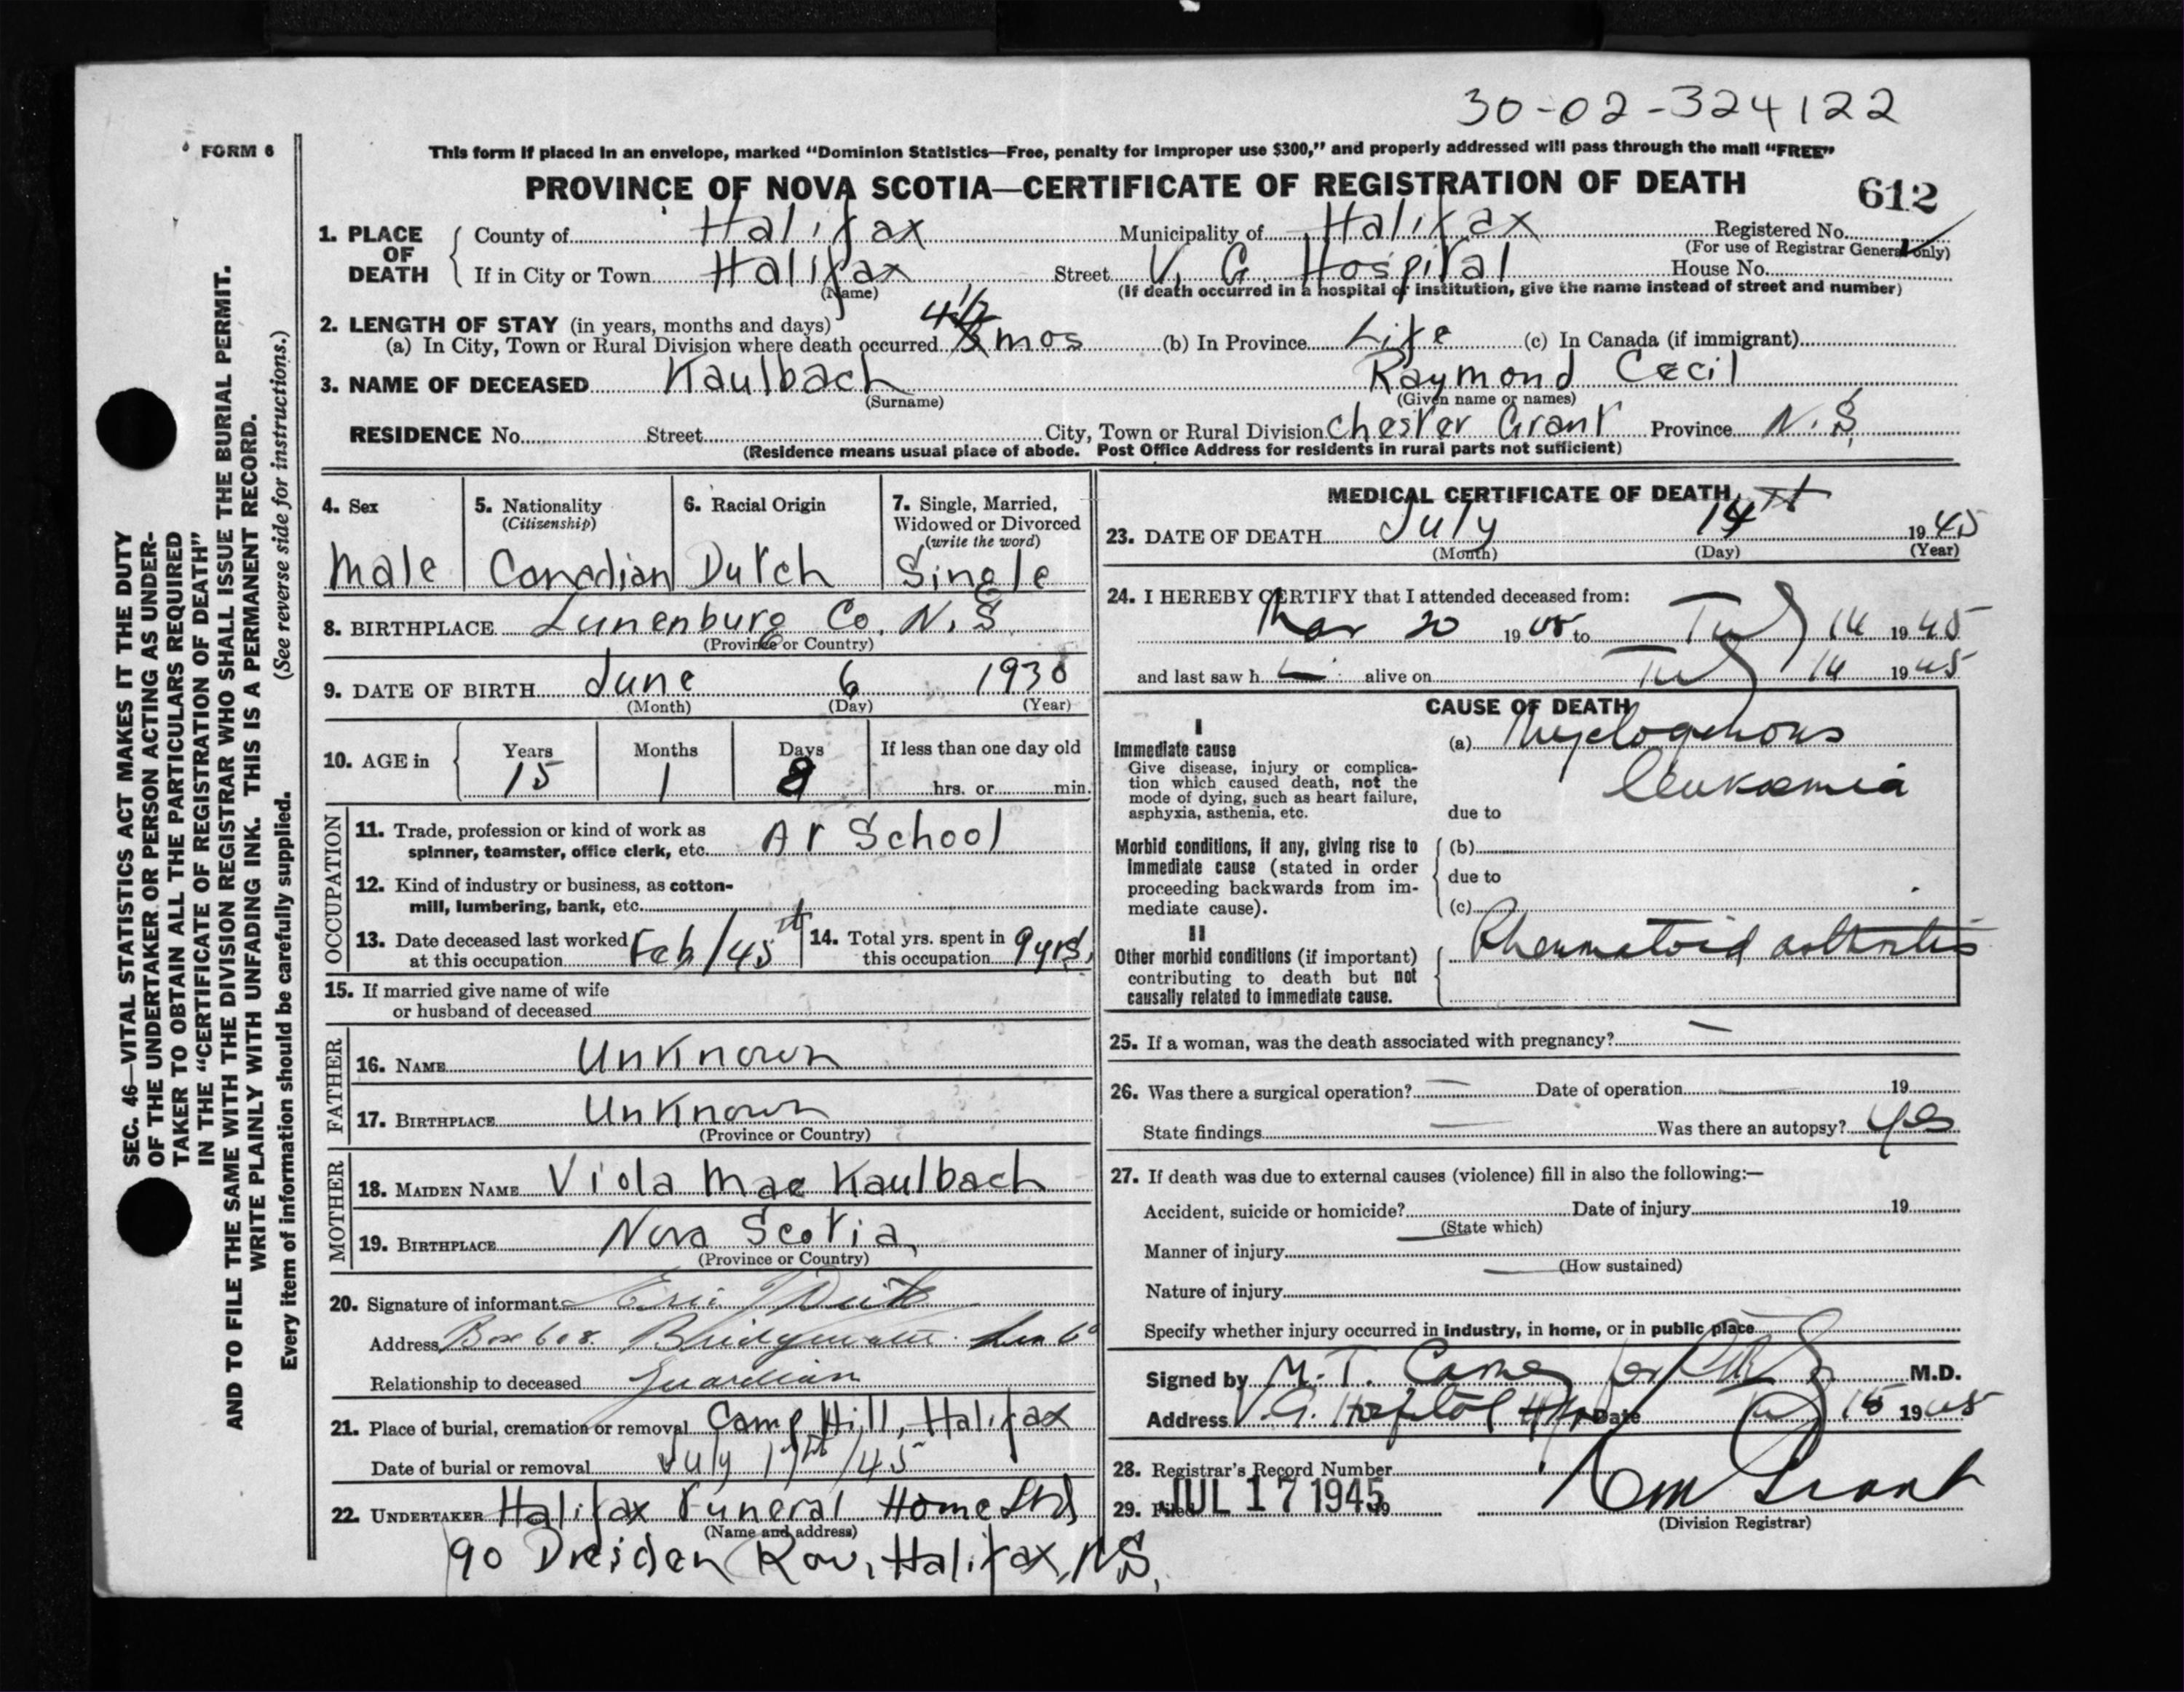 30-02-324122
FORM 6
This form if placed in an envelope, marked “Dominion Statistics—Free, penalty for improper use $300,” and properly addressed will pass through the mail “FREE”
PROVINCE OF NOVA SCOTIA—CERTIFICATE OF REGISTRATION OF DEATH
612
1. PLACE OF DEATH County of Halifax Municipality of Halifax Registered No.
(For use of Registrar General only)
If in City or Town Halifax Street V. G. Hospital House No.
(Name) (If death occurred in a hospital or institution, give the name instead of street and number)
2. LENGTH OF STAY (in years, months and days)
(a) In City, Town or Rural Division where death occurred 4½ mos (b) In Province Life (c) In Canada (if immigrant)
3. NAME OF DECEASED Kaulbach Raymond Cecil
(Surname) (Given name or names)
RESIDENCE No. Street City, Town or Rural Division Chester Grant Province N. S.
(Residence means usual place of abode. Post Office Address for residents in rural parts not sufficient)
4. Sex 5. Nationality (Citizenship) 6. Racial Origin 7. Single, Married, Widowed or Divorced (write the word)
Male Canadian Dutch Single
8. BIRTHPLACE Lunenburg Co. N. S.
(Province or Country)
9. DATE OF BIRTH June 6 1930
(Month) (Day) (Year)
10. AGE in Years Months Days If less than one day old
15 1 8 hrs. or min.
OCCUPATION
11. Trade, profession or kind of work as
spinner, teamster, office clerk, etc. At School
12. Kind of industry or business, as cotton-
mill, lumbering, bank, etc.
13. Date deceased last worked at this occupation Feb/45 14. Total yrs. spent in this occupation 9 yrs.
15. If married give name of wife
or husband of deceased
FATHER
16. NAME Unknown
17. BIRTHPLACE Unknown
(Province or Country)
MOTHER
18. MAIDEN NAME Viola Mae Kaulbach
19. BIRTHPLACE Nova Scotia
(Province or Country)
20. Signature of informant Eric
Address Box 608 Bridgewater Lun Co
Relationship to deceased Guardian
21. Place of burial, cremation or removal Camp Hill, Halifax
Date of burial or removal July 17th/45
22. UNDERTAKER Halifax Funeral Home Ltd
(Name and address)
90 Dresden Row, Halifax, N.S.
MEDICAL CERTIFICATE OF DEATH
23. DATE OF DEATH July 14th 1945
(Month) (Day) (Year)
24. I HEREBY CERTIFY that I attended deceased from:
Mar 20 1945 to July 14 1945
and last saw h alive on July 14 1945
CAUSE OF DEATH
I
Immediate cause (a) Myelogenous
Give disease, injury or complica-
tion which caused death, not the leukaemia
mode of dying, such as heart failure,
asphyxia, asthenia, etc. due to
Morbid conditions, if any, giving rise to (b)
immediate cause (stated in order
proceeding backwards from im- due to
mediate cause). (c)
II
Other morbid conditions (if important) Rheumatoid arthritis
contributing to death but not
causally related to immediate cause.
25. If a woman, was the death associated with pregnancy? —
26. Was there a surgical operation? — Date of operation — 19
State findings — Was there an autopsy? yes
27. If death was due to external causes (violence) fill in also the following:—
Accident, suicide or homicide? Date of injury 19
(State which)
Manner of injury
(How sustained)
Nature of injury
Specify whether injury occurred in industry, in home, or in public place
Signed by M. T. M.D.
Address V. G. Hospital Hfx Date July 15 1945
28. Registrar's Record Number
29. Filed JUL 17 1945 19
(Division Registrar)
SEC. 46—VITAL STATISTICS ACT MAKES IT THE DUTY
OF THE UNDERTAKER OR PERSON ACTING AS UNDER-
TAKER TO OBTAIN ALL THE PARTICULARS REQUIRED
IN THE “CERTIFICATE OF REGISTRATION OF DEATH”
AND TO FILE THE SAME WITH THE DIVISION REGISTRAR WHO SHALL ISSUE THE BURIAL PERMIT.
WRITE PLAINLY WITH UNFADING INK. THIS IS A PERMANENT RECORD.
(See reverse side for instructions.)
Every item of information should be carefully supplied.